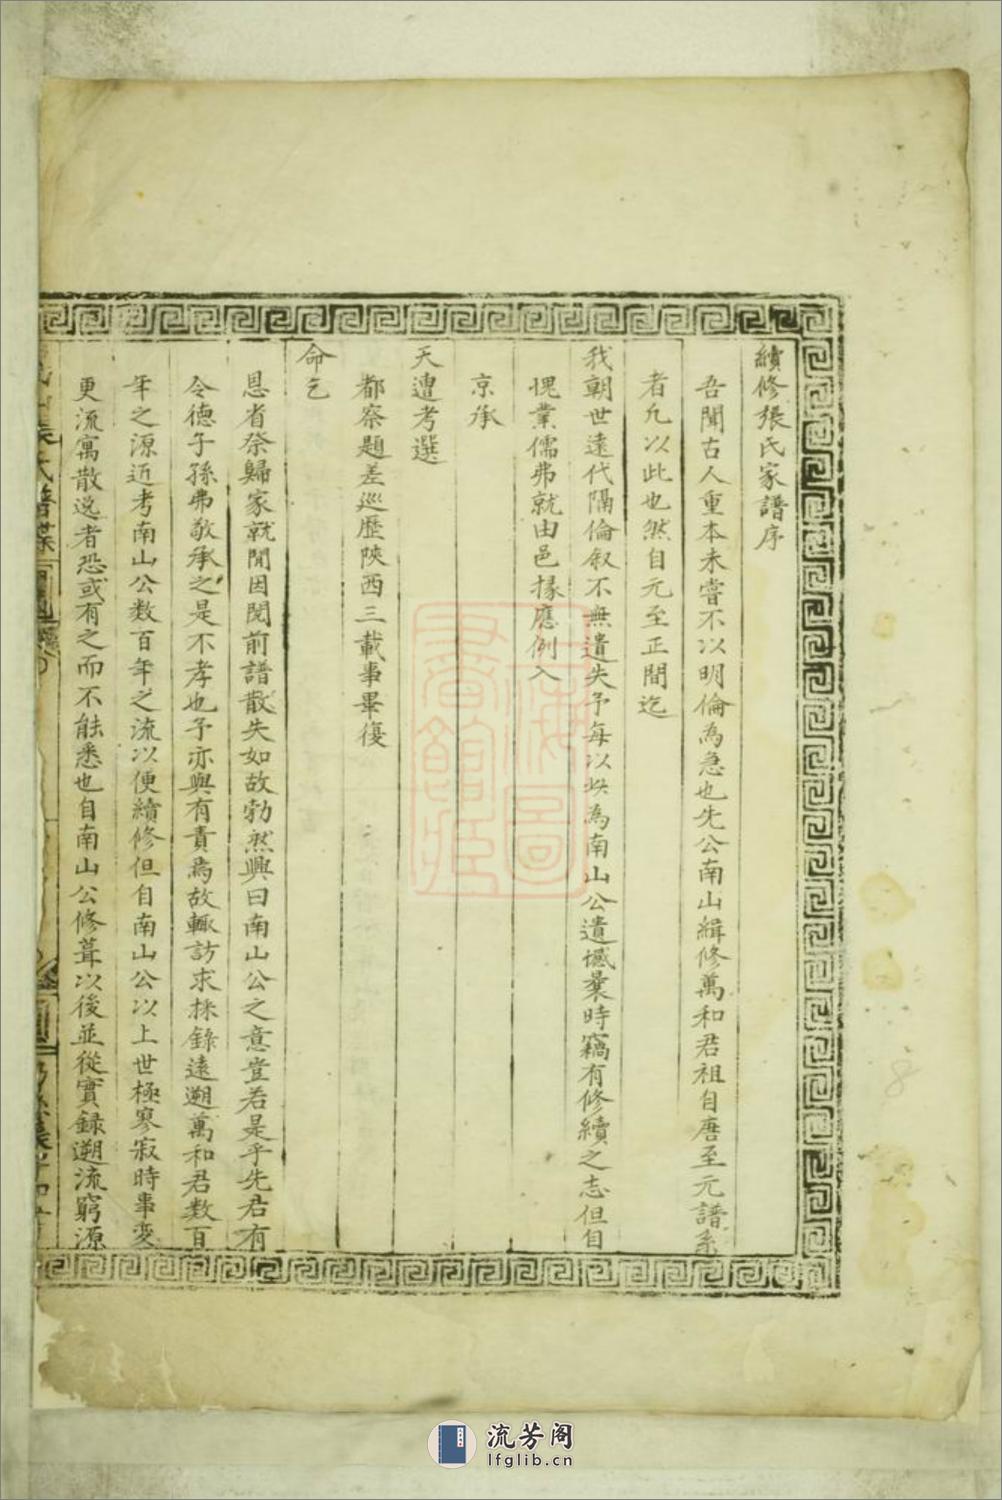 續修張氏家譜序
吾聞古人重本未嘗不以明倫為急也先公南山緝修萬和君祖自唐至元譜系
者允以此也然自元至正間迄
我朝世遠代隔倫叙不無遺失予每以此為南山公遺憾曩時竊有修續之志但自
愧業儒弗就由邑掾應例入
京承
天遭考選
都察題差巡歷陝西三載事畢復
命乞
恩省祭歸家就閒因閱前譜散失如故勃然興曰南山公之意豈若是乎先君有
令德子孫弗敬承之是不孝也予亦與有責焉故輒訪求採錄遠遡萬和君數百
年之源近考南山公數百年之流以便續修但自南山公以上世極寥寂時事变
更流寓散逸者恐或有之而不能悉也自南山公修葺以後並從實録遡流窮源
張氏譜牒
上海圖書館藏
流芳阁
lfglib.cn